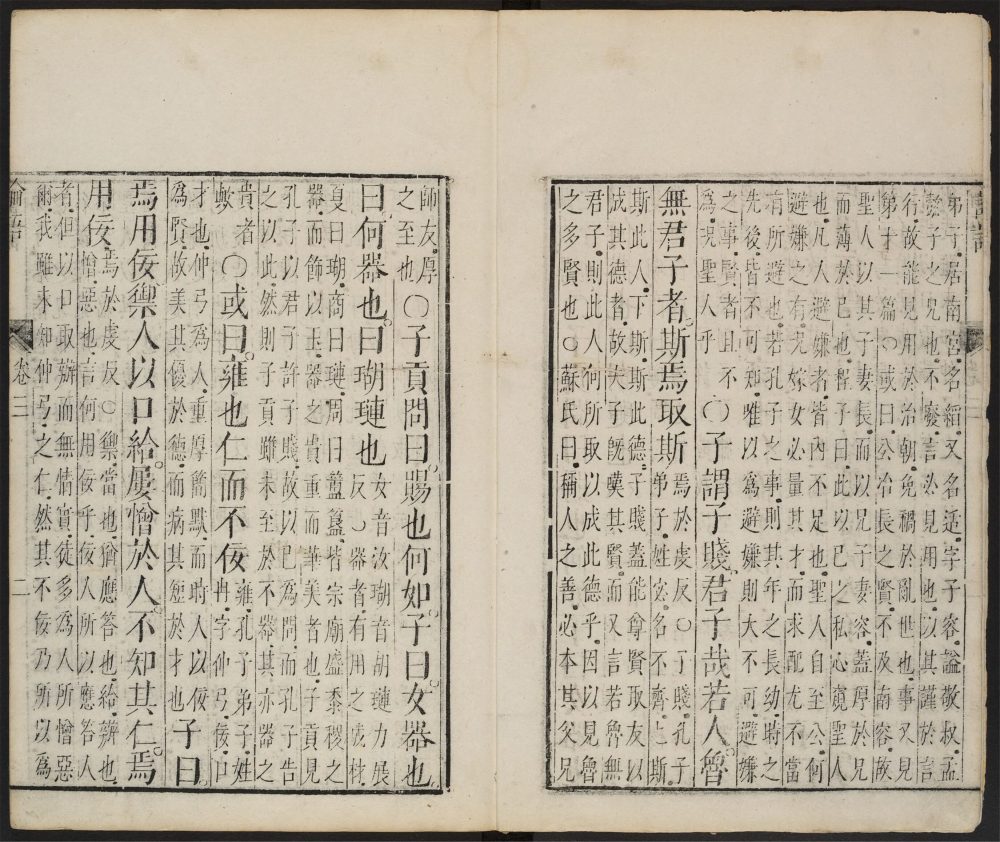 弟子居南宮名縚又名适字子容諡敬叔孟
懿子之兄也不廢言必見用也以其謹於言
行故能見用於治朝免禍於亂世也事又見
第十一篇○或曰公冶長之賢不及南容故
聖人以其子妻長而以兄子妻容蓋厚於兄
而薄於己也程子曰此以己之私心窺聖人
也凡人避嫌者皆內不足也聖人自至公何
避嫌之有况嫁女必量其才而求配尤不當
有所避也若孔子之事則其年之長幼時之
先後皆不可知唯以為避嫌則大不可避嫌
之事賢者且不
為况聖人乎
○子謂子賤君子哉若人魯
無君子者斯焉取斯
焉於虔反○子賤孔子
弟子姓宓名不齊上斯
斯此人下斯斯此德子賤蓋能尊賢取友以
成其德者故夫子既嘆其賢而又言若魯無
君子則此人何所取以成此德乎因以見魯
之多賢也○蘇氏曰稱人之善必本其父兄
師友厚
之至也
○子貢問曰賜也何如子曰女器也
曰何器也曰瑚璉也
女音汝瑚音胡璉力展
反○器者有用之成材
夏曰瑚商曰璉周曰簠簋皆宗廟盛黍稷之
器而飾以玉器之貴重而華美者也子貢見
孔子以君子許子賤故以己為問而孔子告
之以此然則子貢雖未至於不器其亦器之
貴者
歟
○或曰雍也仁而不佞
雍孔子弟子姓
冉字仲弓佞口
才也仲弓為人重厚簡默而時人以佞
為賢故美其優於德而病其短於才也
子曰
焉用佞禦人以口給屢憎於人不知其仁焉
用佞
焉於虔反○禦當也猶應答也給辨也
憎惡也言何用佞乎佞人所以應答人
者但以口取辨而無情實徒多為人所憎惡
爾我雖未知仲弓之仁然其不佞乃所以為
論語 卷三 二